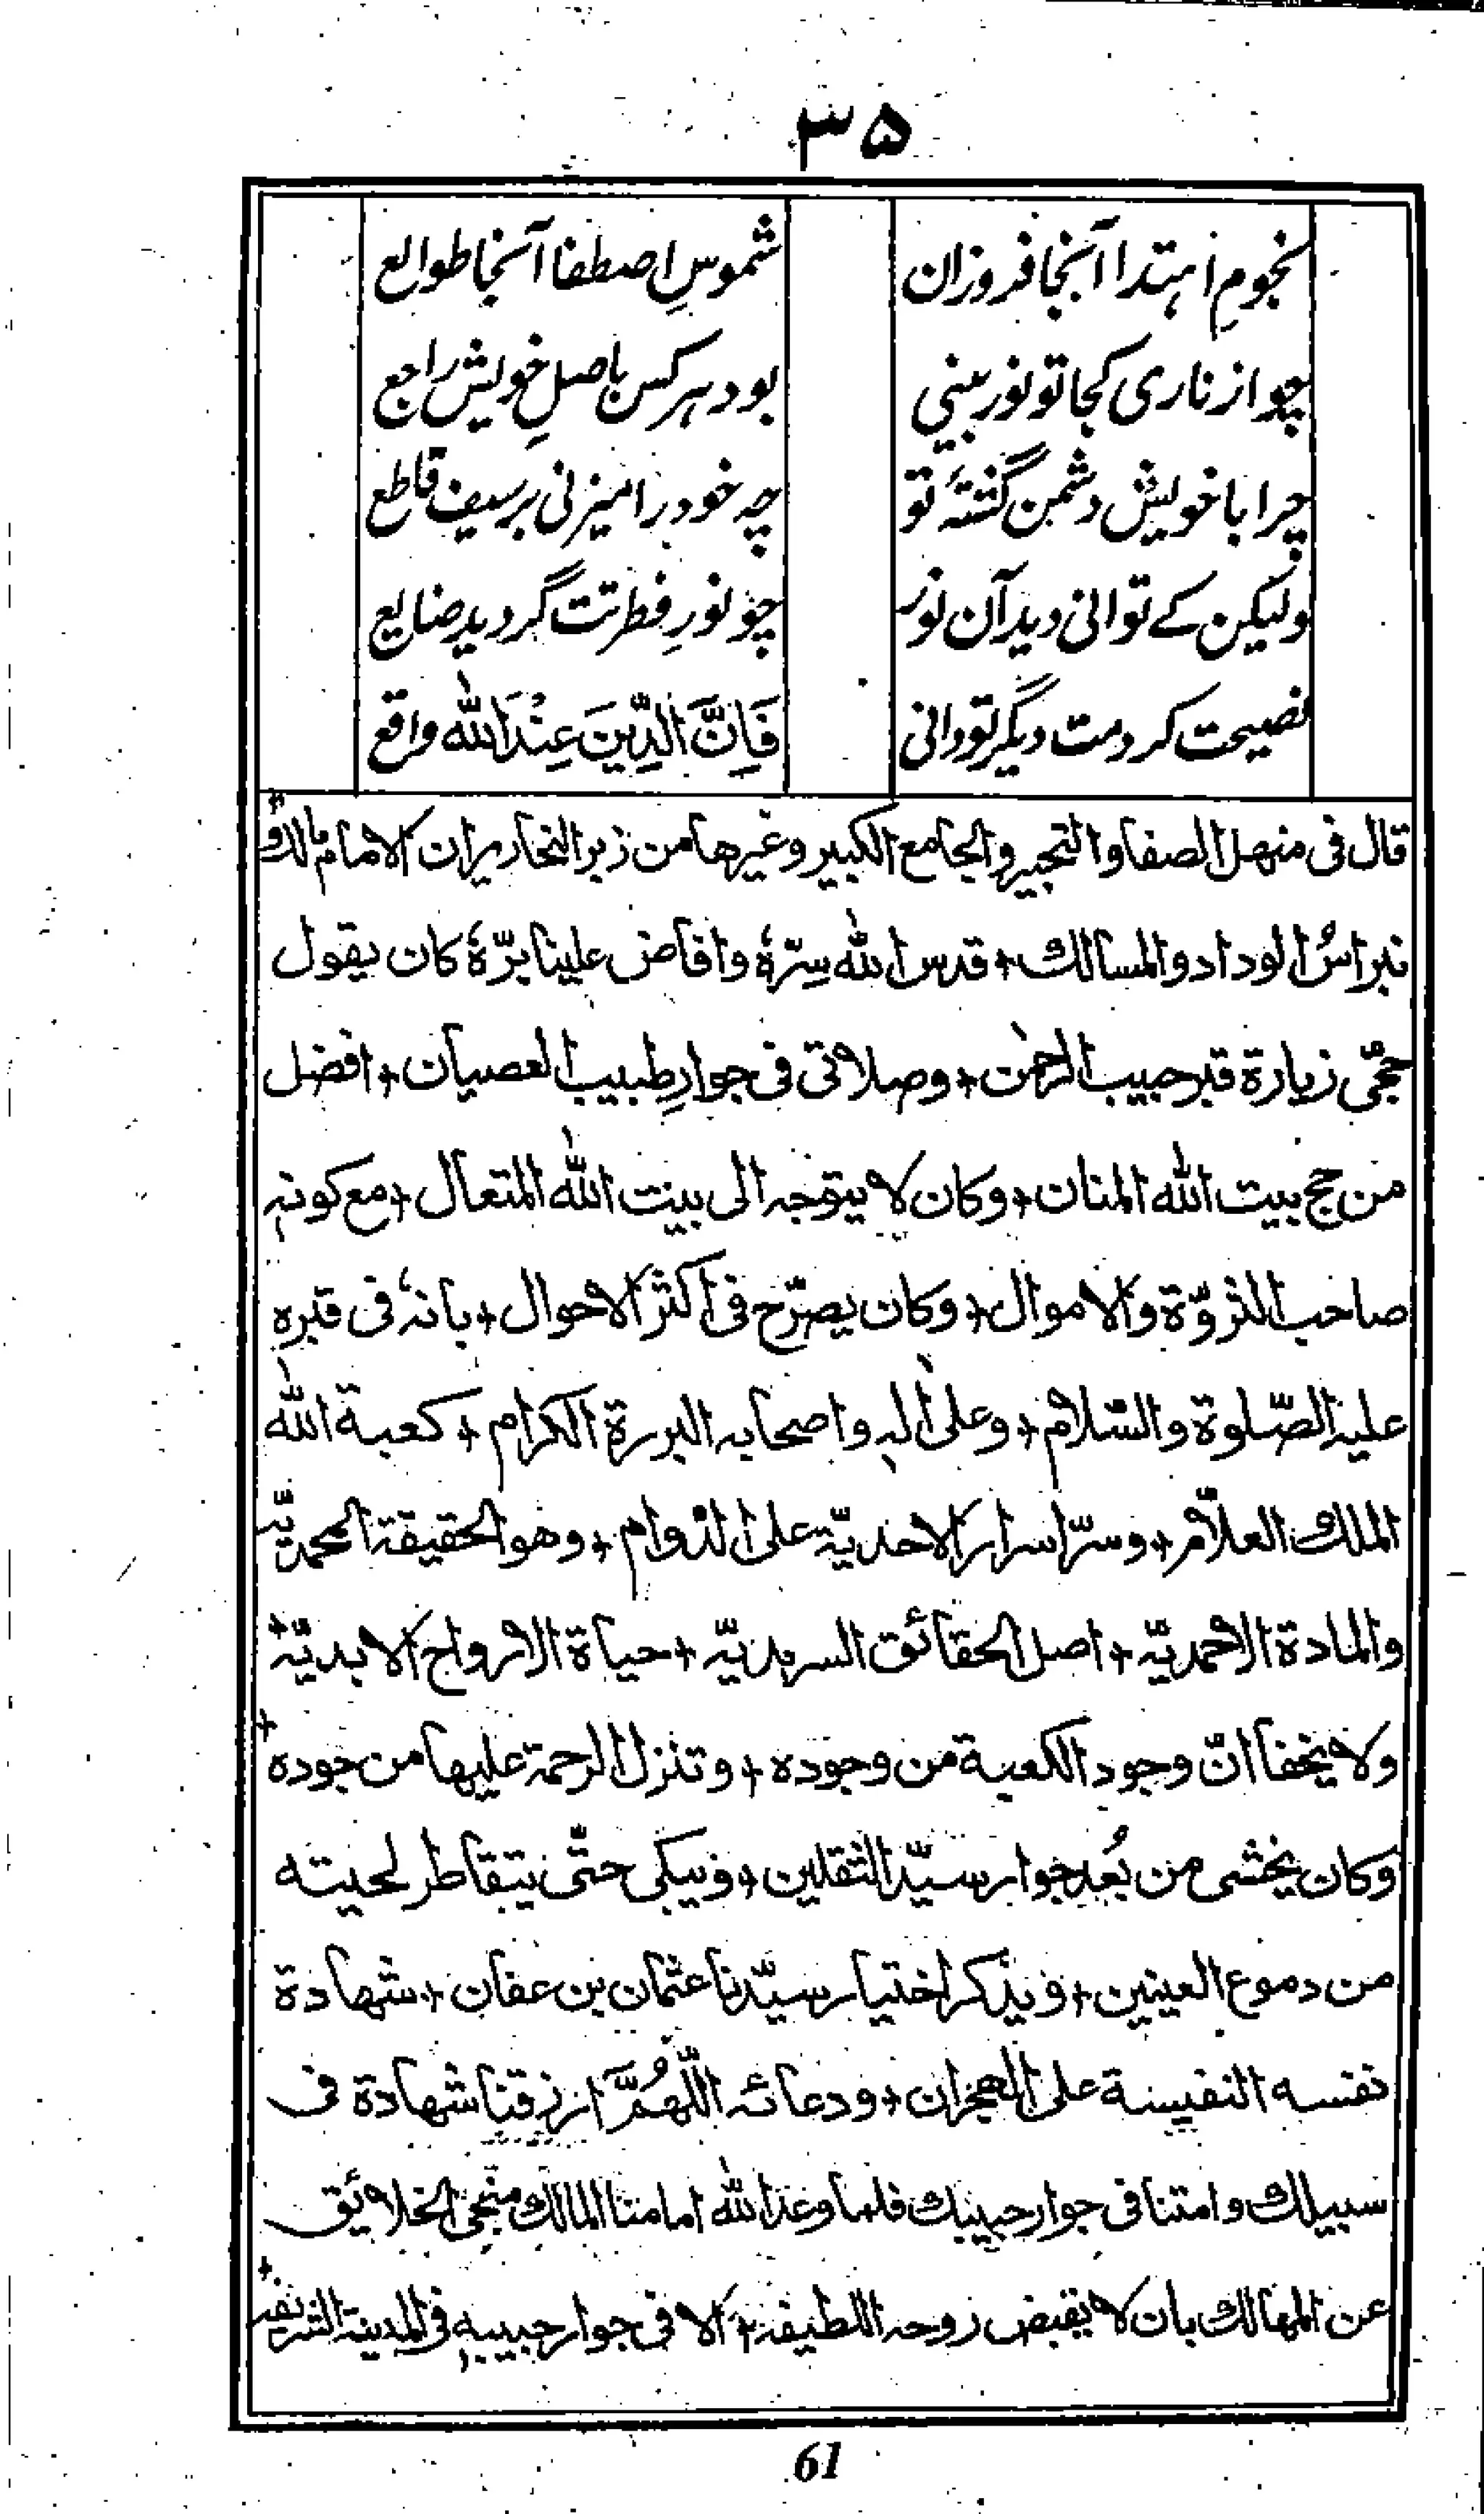 ۳۵
نجومِ اہتدا آنجا فروزان شموسِ اصطفا آنجا طوالع
چو از ناری کجا تو نور بینی بود ہر کس باصلِ خویش راجع
چرا با خویش دشمن گشتۂ تو چہ خود را میزنی بر سیف قاطع
ولیکن کے توانی دید آن نور چو نورِ فطرتت گردید ضایع
نصیحت کردمت دیگر تو دانی فَاِنَّ الدِّینَ عِنْدَ اللّٰه واقع
قال فی منهل الصفا والتجیر والجامع الکبیر وغیرها من زبر النحاریر ان الامام مالك و
نبراسُ الوداد والمسالك + قدس الله سِرّہٗ وافاض علینا برّہٗ کان یقول
حجّی زیارۃ قبر حبیب الرحمٰن + وصلاتی فی جوارِ طبیب العصیان + افضل
من حج بیت الله المنان + وکان لا یتوجہ الی بیت الله المتعال + مع کونہٖ
صاحب الثروّۃ والاموال + وکان یصرّح فی اکثر الاحوال + بانہٗ فی قبرہ
علیہ الصّلوۃ والسّلام + وعلی اٰلہٖ واصحابہ البررۃ الکرام + کعبۃ الله
الملك العلّام + وسرّ اسرار الاحدیّۃ علی الدّوام + وهو الحقیقۃ المحمدیّۃ
والمادۃ الاحمدیّہ + اصل الحقائق السرمدیّہ + حیاۃ الارواح الابدیّۃ +
ولا یخفا انّ وجود الکعبۃ من وجودہ + وتنزل الرحمۃ علیها من جودہ +
وکان یخشی من بُعدِ جوار سیّد الثقلین + ویبکی حتّی یتقاطر لحیتہ
من دموع العینین + ویذکر اختیار سیّدنا عثمان بن عفان + شهادۃ
نفسہ النفیسۃ علی الهجران + ودعائہ اللّٰهُمَّ ارزقنا شهادۃ فی
سبیلك وامتنا فی جوار حبیبك فلما وعد الله امامنا المالك منجی الخلایق
عن المهالك بان لا یقبض روحہ اللطیفہ + الا فی جوار حبیبہٖ فی المدینۃ الشریفہ +
61